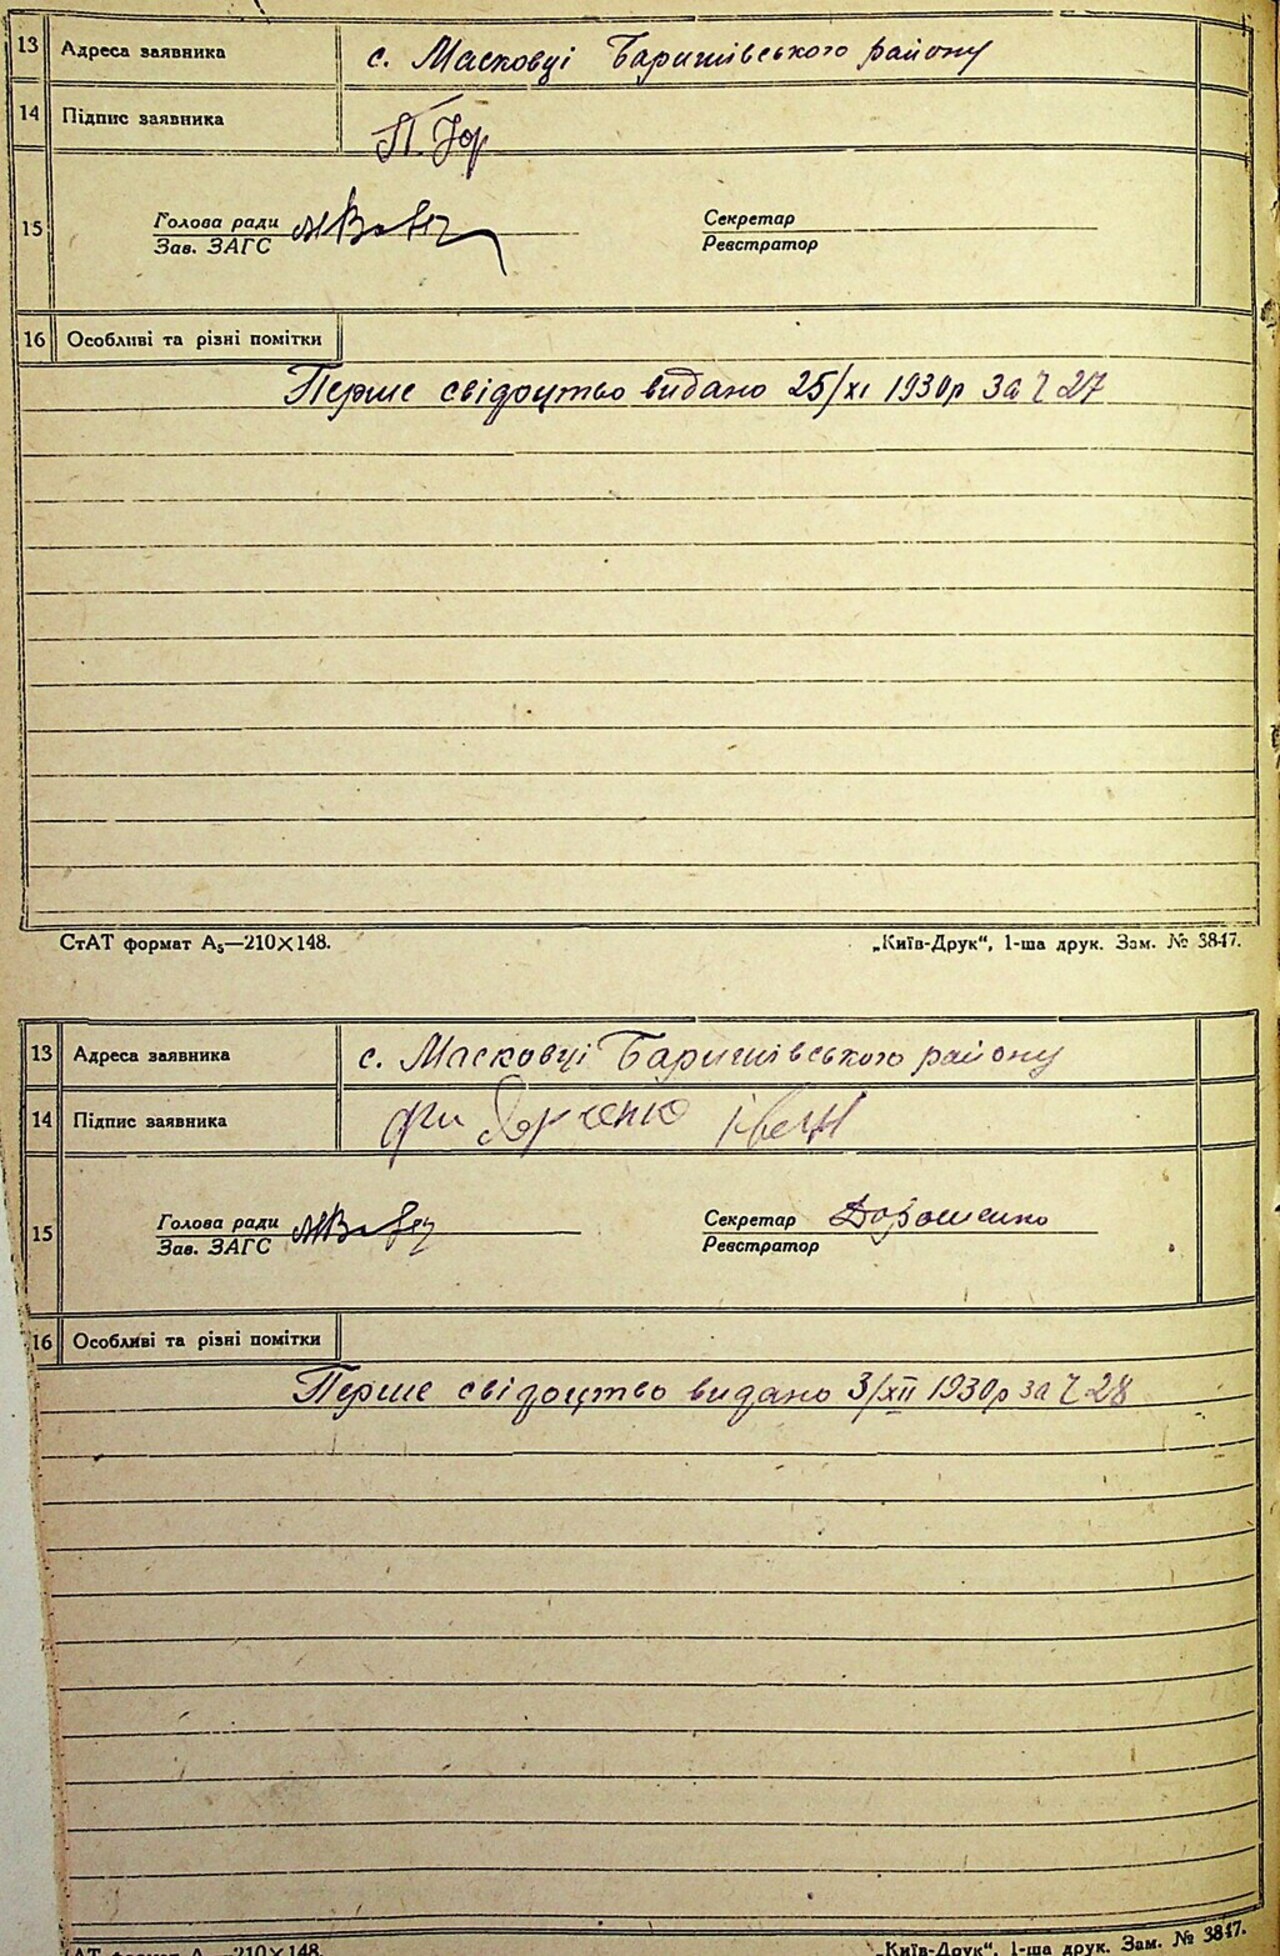 13 Адреса заявника с. Масковці Баришівського району
14 Підпис заявника П.
15 Голова ради Секретар
Зав. ЗАГС Реєстратор
16 Особливі та різні помітки
Перше свідоцтво видано 25/XI 1930р за Ч 27
СтАТ формат А₅—210×148. „Київ-Друк“, 1-ша друк. Зам. № 3847.
13 Адреса заявника с. Масковці Баришівського району
14 Підпис заявника
15 Голова ради Секретар Дорошенко
Зав. ЗАГС Реєстратор
16 Особливі та різні помітки
Перше свідоцтво видано 3/XII 1930р за Ч 28
АТ формат А —210×148. „Київ-Друк“, 1-ша друк. Зам. № 3847.